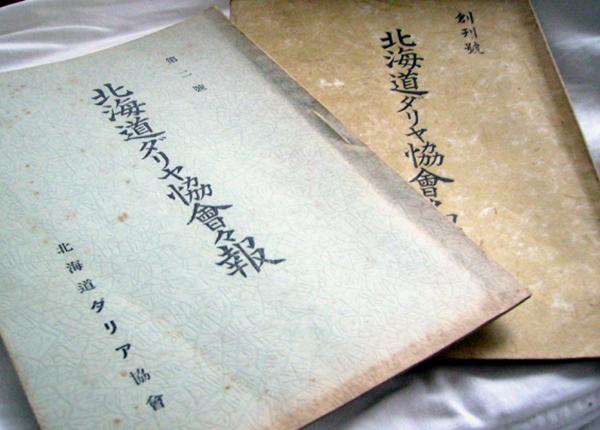 第二號
北海道ダリヤ協會々報
北海道ダリア協會
創刊號
北海道ダリヤ協會